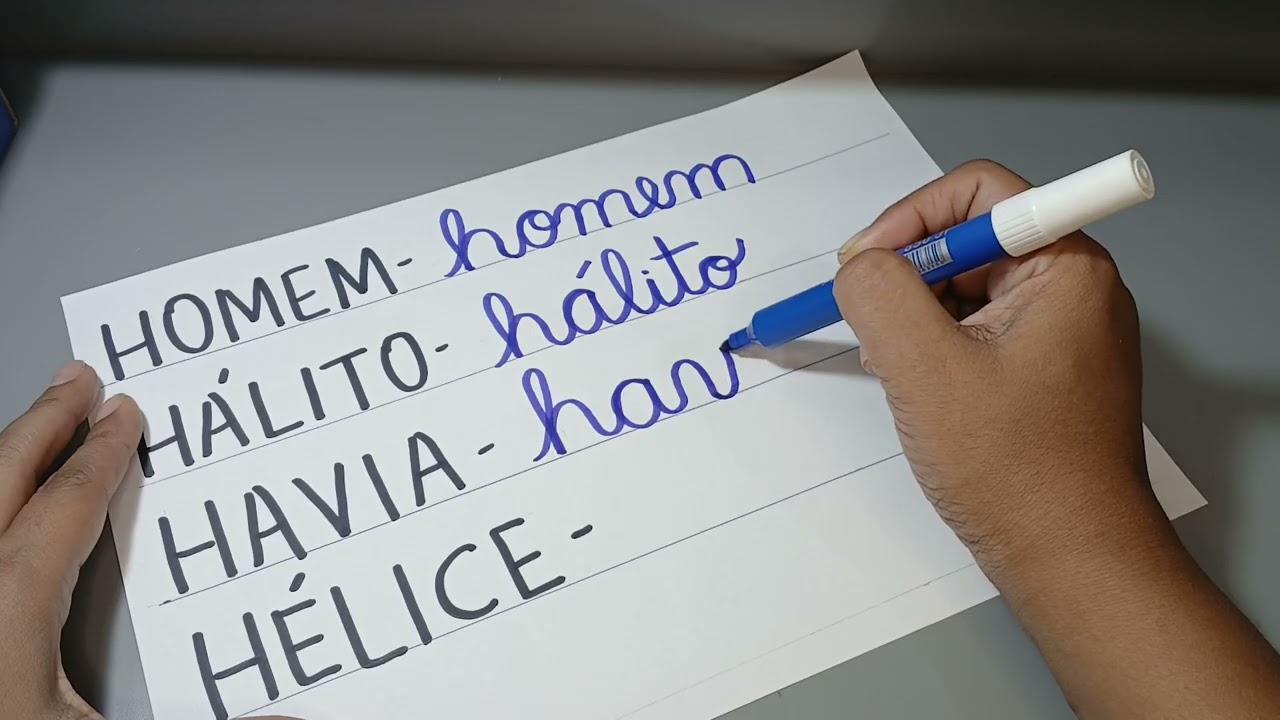 HOMEM- homem
HÁLITO- hálito
HAVIA - hav
HÉLICE -